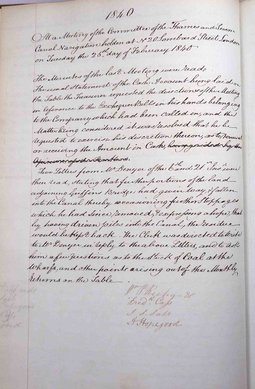 1840
At a Meeting of the Committee of the Thames and Severn
Canal Navigation holden at No 20 Lombard Street London
on Tuesday the 25th day of February 1840
The Minutes of the last Meeting were Read
The usual Statement of the Cash Account being laid on
the Table the Treasurer requested the directions of the Meeting
in reference to the Exchequer Bills in his hands belonging
to the Company which had been called in, and the
Matter being considered it was resolved that he be
requested to exercise his discretion thereon, as to
or receiving the Amount in Cash
Two Letters from Mr Denyer of the 1st and 21st Inst were
then read, stating that further portions of the land
adjoining Griffin's Barge had given way & fallen
into the Canal thereby occasioning further Stoppages
which he had since removed, & expressing a hope that
by having driven piles into the Canal, the residue
would be kept back. The Clerk was directed to write
to Mr Denyer in reply to the above Letters, and to ask
him a few questions as to the Stock of Coal at the
Wharfs, and other points arising out of the Monthly
Returns on the Table